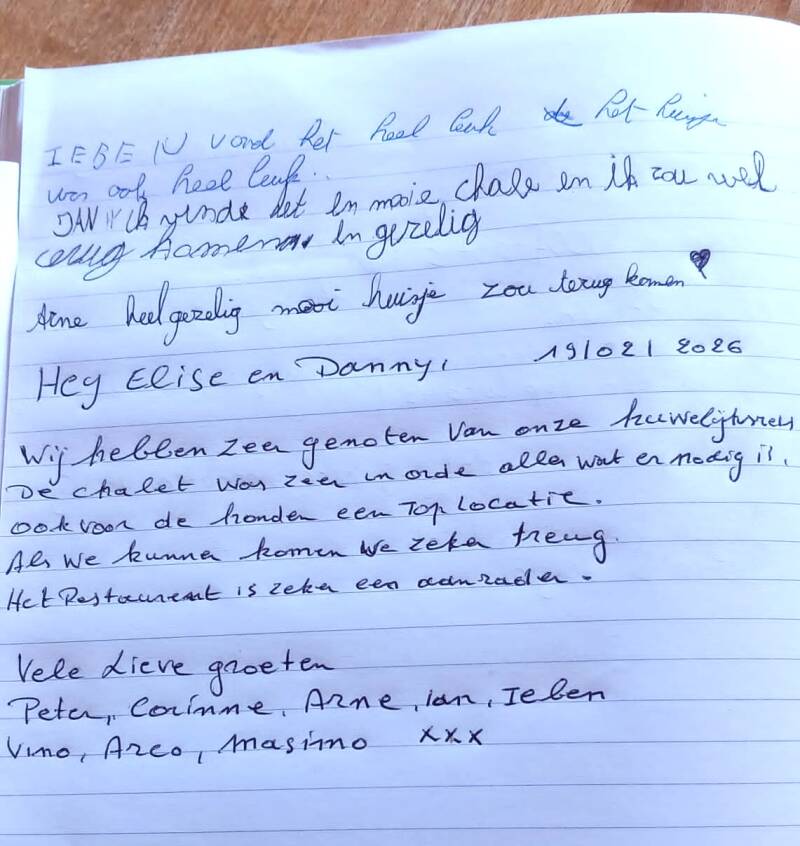 IEBE IV vond het heel leuk het huisje
was ook heel leuk..
JAN ik vinde het en mooie chale en ik zou wel
terug komen en gezelig
Arne heel gezelig mooi huisje zou terug komen
Hey Elise en Danny, 19/02/2026
Wij hebben zeer genoten van onze huwelijksreis
De chalet was zeer in orde alles wat er nodig is.
Ook voor de honden een Top Locatie.
Als we kunnen komen we zeker treug.
Het Restaurant is zeker een aanrader.
Vele Lieve groeten
Peter, Corinne, Arne, Ian, Ieben
Vino, Arco, Masimo xxx